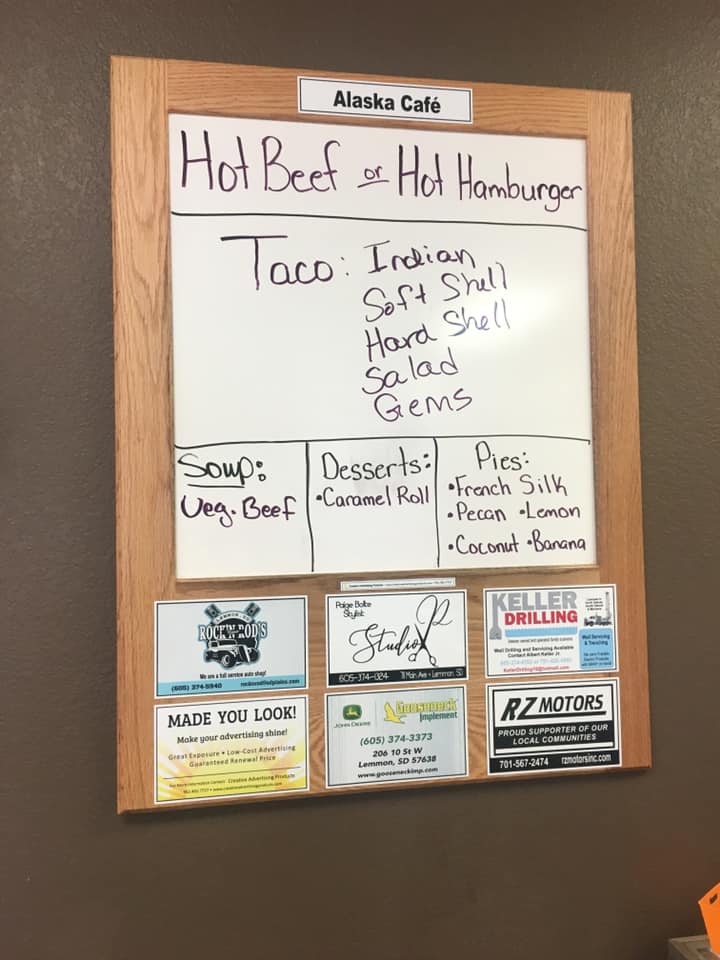 Alaska Café
Hot Beef or Hot Hamburger
Taco: Indian
Soft Shell
Hard Shell
Salad
Gems
Soup:
Veg. Beef
Desserts:
•Caramel Roll
Pies:
•French Silk
•Pecan •Lemon
•Coconut •Banana
ROCK'N ROD'S
We are a full service auto shop!
(605) 374-5940
Paige Bolte
Stylist
Studio
605-374-1324 71 Main Ave • Lemmon, SD
KELLER
DRILLING
Well Drilling and Servicing Available
Contact Albert Keller Jr.
Well Servicing
& Trenching
MADE YOU LOOK!
Make your advertising shine!
Great Exposure • Low-Cost Advertising
Guaranteed Renewal Price
JOHN DEERE
Gooseneck
Implement
(605) 374-3373
206 10 St W
Lemmon, SD 57638
www.gooseneckimp.com
RZ MOTORS
PROUD SUPPORTER OF OUR
LOCAL COMMUNITIES
701-567-2474 rzmotorsinc.com